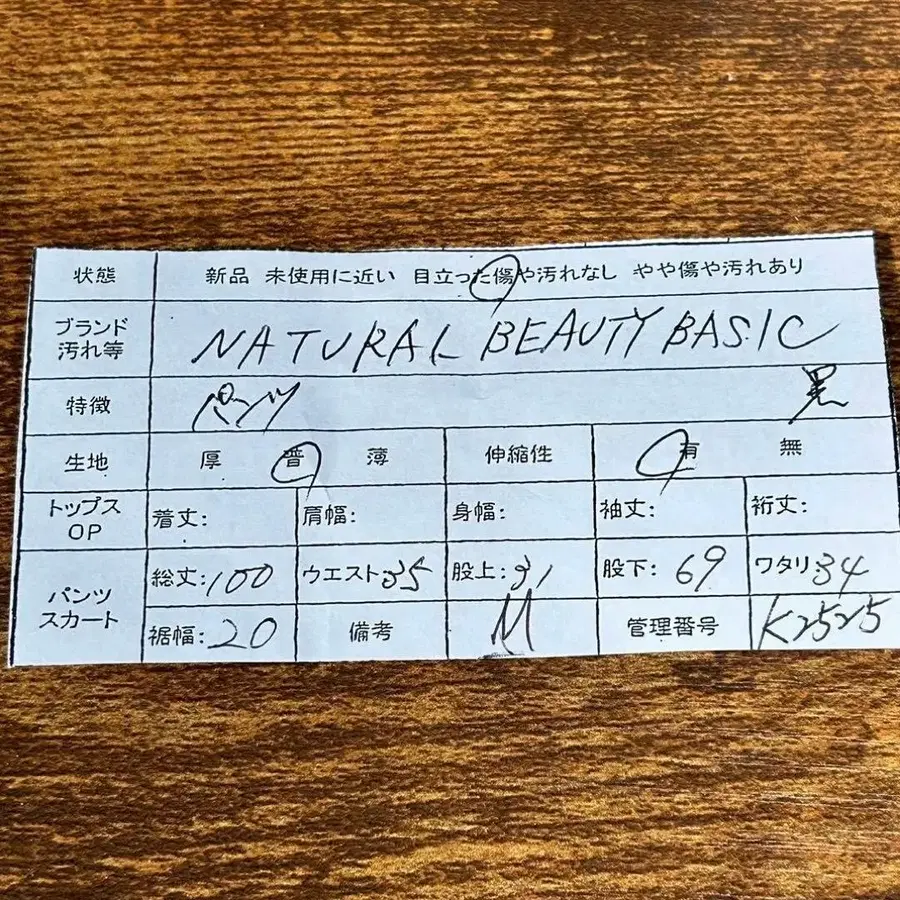 状態 新品 未使用に近い 目立った傷や汚れなし やや傷や汚れあり
ブランド
汚れ等 NATURAL BEAUTY BASIC
特徴 パンツ 黒
生地 厚 普 薄 伸縮性 有 無
トップス
OP 着丈: 肩幅: 身幅: 袖丈: 裄丈:
パンツ
スカート 総丈:100 ウエスト35 股上:31 股下:69 ワタリ34
裾幅:20 備考 M 管理番号 K2525